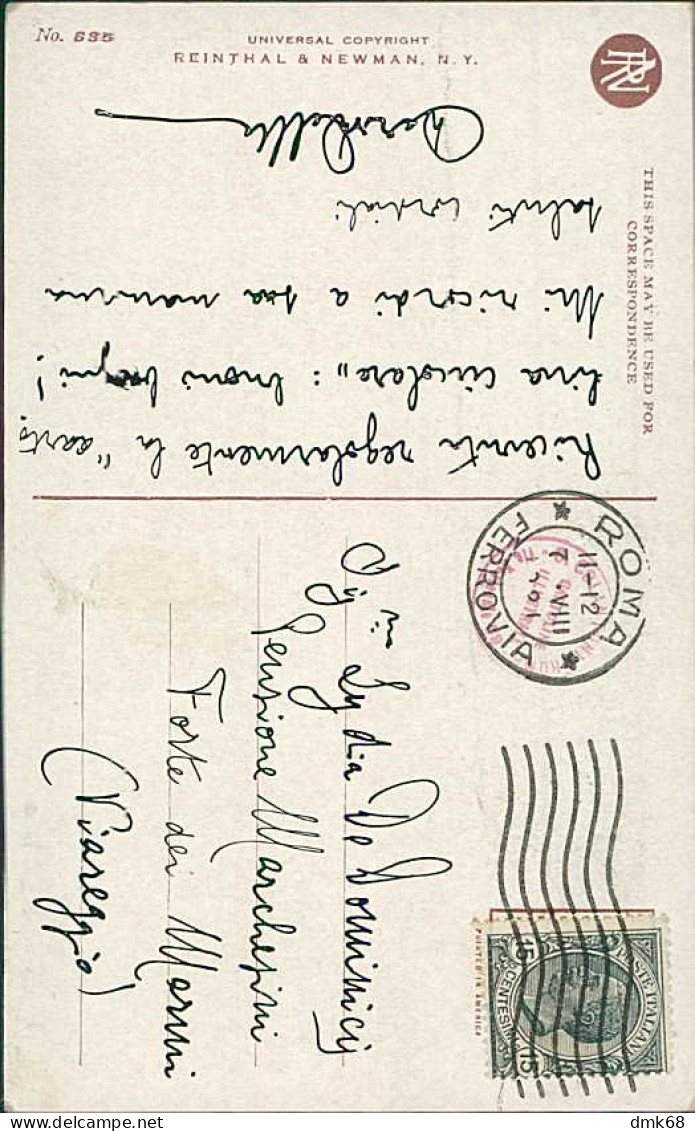 No. 635
UNIVERSAL COPYRIGHT
REINTHAL & NEWMAN, N. Y.
RN
THIS SPACE MAY BE USED FOR
CORRESPONDENCE
Ricevuta regolarmente la "carto
lina circolare": buoni bagni!
Mi ricordi a sua mamma
saluti cordiali
ROMA
FERROVIA
11-12
7 · VIII
Sig.na Lydia De Dominicis
Pensione Marchesini
Forte dei Marmi
(Viareggio)
POSTE ITALIANE
15 CENTESIMI 15
PRINTED IN AMERICA
dmk68